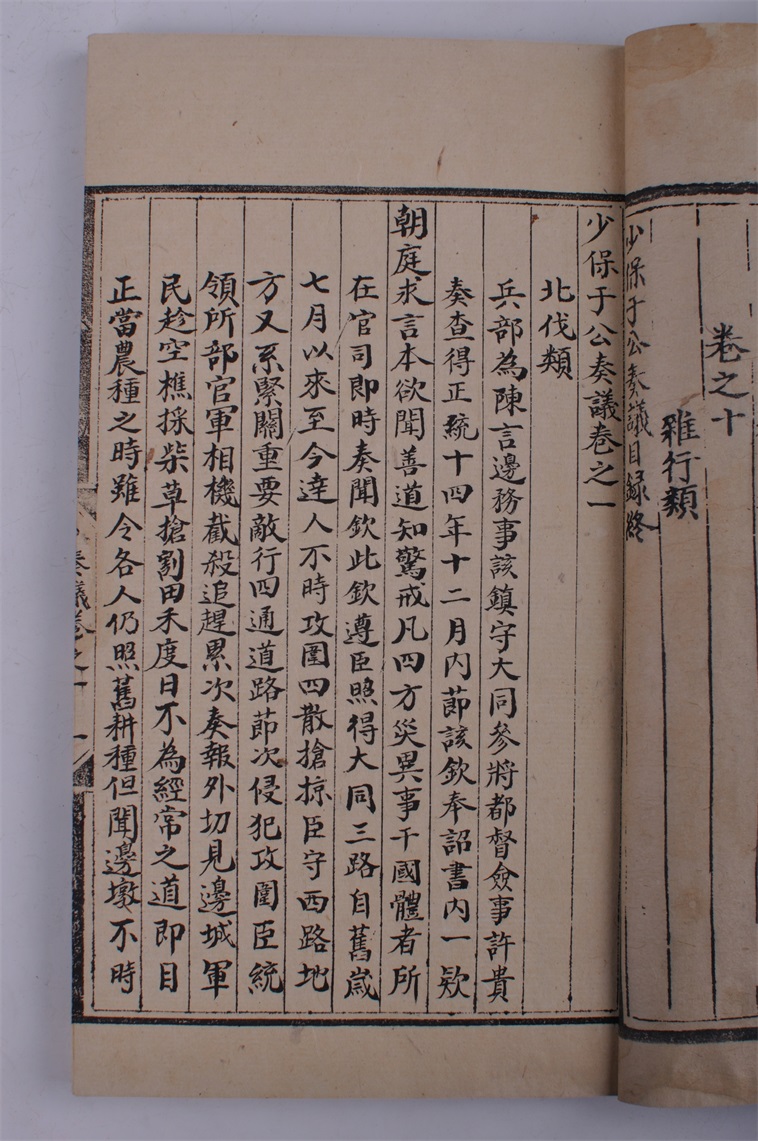 卷之十
雜行類
少保于公奏議目録終
少保于公奏議卷之一
北伐類
兵部為陳言邊務事該鎮守大同參將都督僉事許貴
奏查得正統十四年十二月內節該欽奉詔書內一欵
朝庭求言本欲聞善道知驚戒凡四方災異事干國體者所
在官司即時奏聞欽此欽遵臣照得大同三路自舊歲
七月以來至今達人不時攻圍四散搶掠臣守西路地
方又系緊關重要敵行四通道路節次侵犯攻圍臣統
領所部官軍相機截殺追趕累次奏報外切見邊城軍
民趁空樵採柴草搶割田禾度日不為經常之道即目
正當農種之時雖令各人仍照舊耕種但聞邊墩不時
奏議卷之一